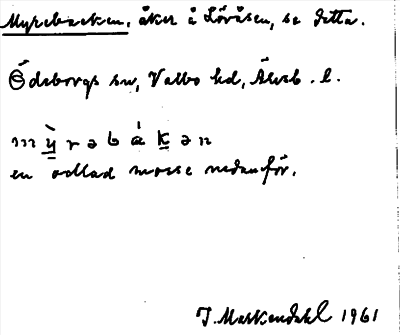 Myrebacken, åker å Lövåsen, se detta.
Ödeborgs sn, Valbo hd, Älvsb. l.
m ỳ̱ r ə b á ḵ ə n
en odlad mosse nedanför.
J. Markendahl 1961